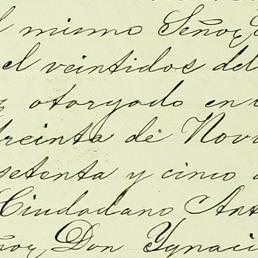 l mismo Señor
el veintidos del
otorgado en
treinta de Nov
setenta y cinco
Ciudadano Ant
ñor, Don Ygnaci